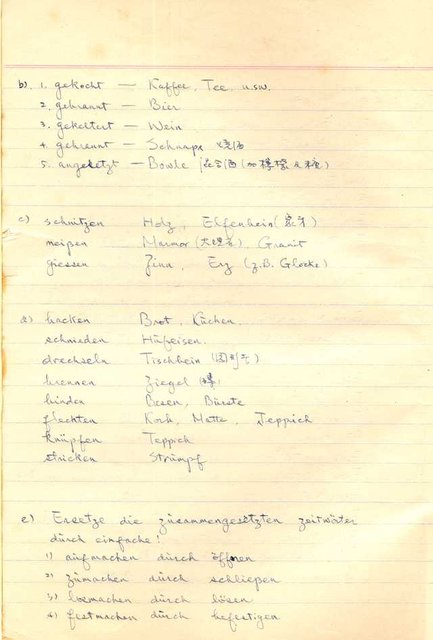 b) 1. gekocht — Kaffee, Tee usw.
2. gebrannt — Bier
3. gekeltert — Wein
4. gebrennt — Schnaps 烧酒
5. angesetzt — Bowle 混合酒 (加檸檬及糖)
c) schnitzen Holz, Elfenbein (象牙)
meißen Marmor (大理石), Granit
giessen Zinn, Erz (z.B. Glocke)
d) backen Brot, Kuchen.
schmieden Hufeisen.
drechseln Tischbein
brennen Ziegel (磚)
binden Besen, Bürste
flechten Korb, Matte, Teppich
knüpfen Teppich
stricken Strumpf
e) Ersetze die zusammengesetzten Zeitwörter
durch einfache!
1) aufmachen durch öffnen
2) zumachen durch schließen
3) losmachen durch lösen
4) festmachen durch befestigen